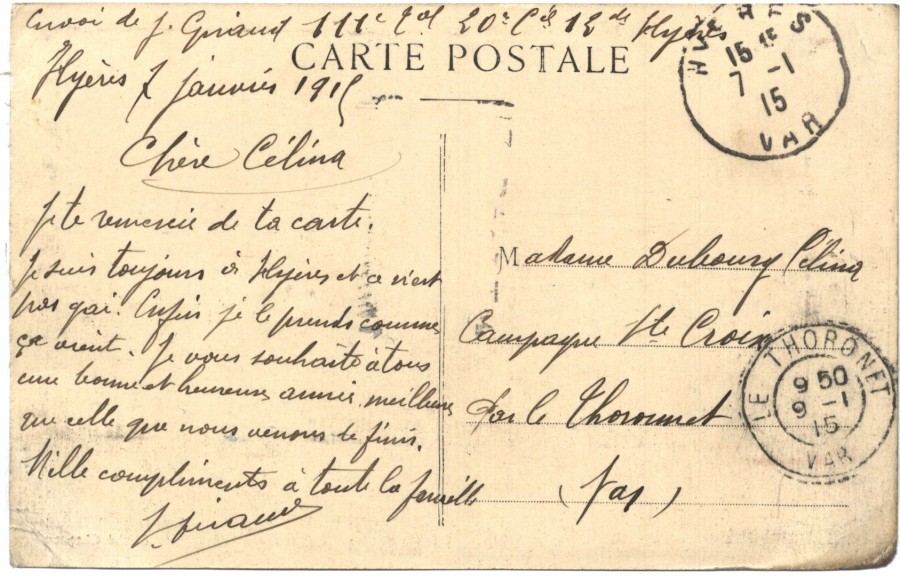 Envoi de J. Giraud 111e Tal 20e Cie 12 de Hyères
CARTE POSTALE
Hyères 7 janvier 1915
Chère Célina
Je te remercie de ta carte.
Je suis toujours à Hyères et ce n'est
pas gai. Enfin je le prends comme
ça vient. Je vous souhaite à tous
une bonne et heureuse année, meilleure
que celle que nous venons de finir.
Mille compliments à toute la famille
J. Giraud
HYÈRES
15
7 -1
15
VAR
Madame Dubourg Célina
Campagne Ste Croix
Par le Thoronnet
(Var)
LE THORONET
9 50
9 -1
15
VAR